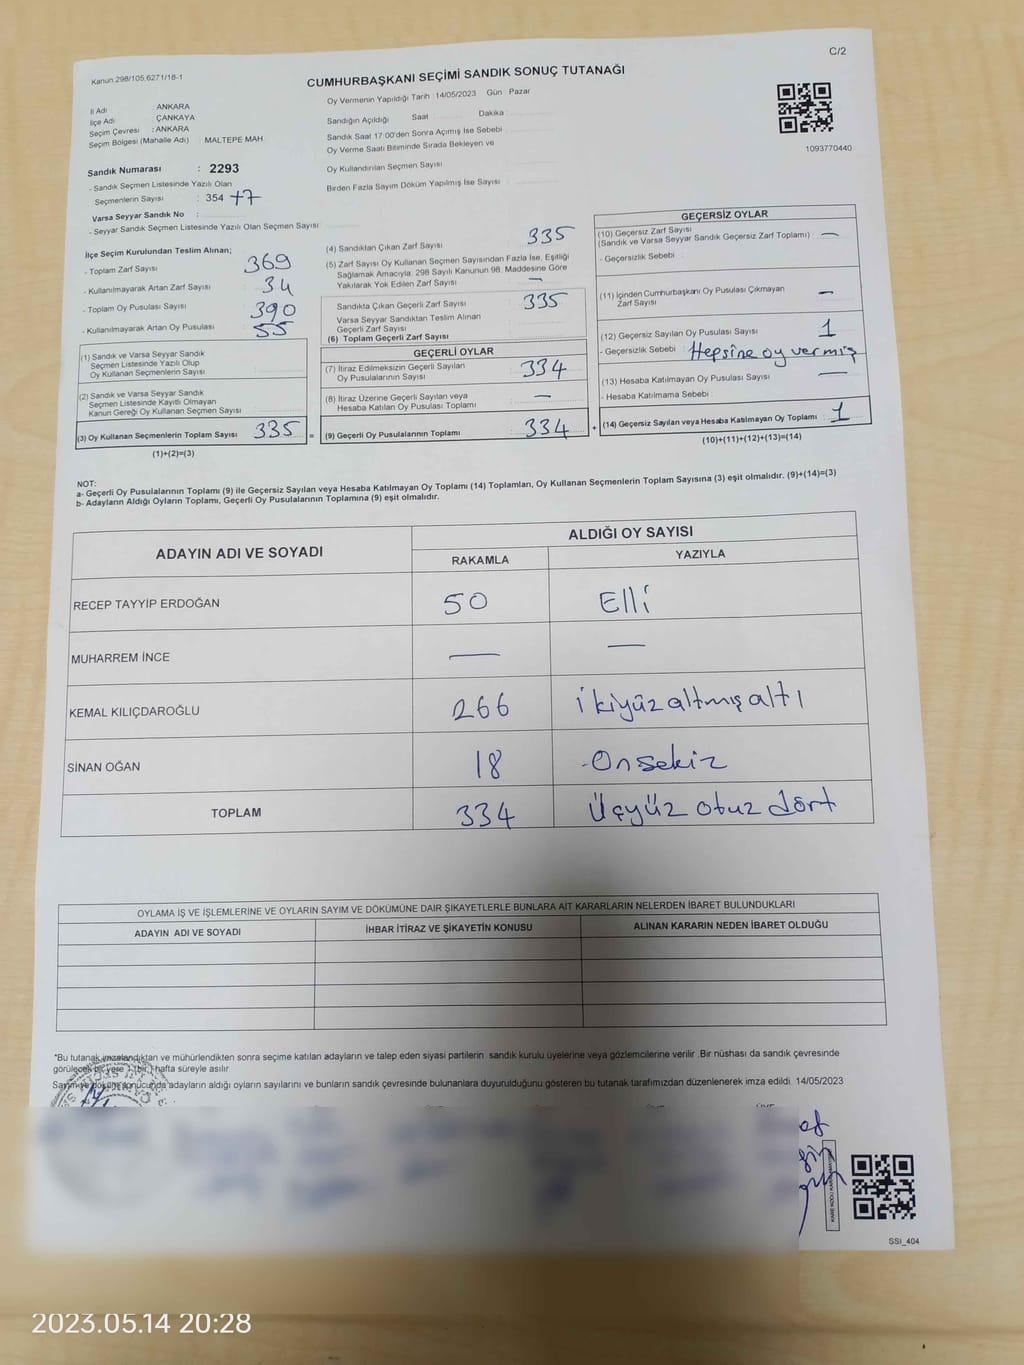 C/2
Kanun:298/105,6271/18-1
CUMHURBAŞKANI SEÇİMİ SANDIK SONUÇ TUTANAĞI
İl Adı ANKARA
İlçe Adı ÇANKAYA
Seçim Çevresi : ANKARA
Seçim Bölgesi (Mahalle Adı) MALTEPE MAH
Sandık Numarası : 2293
- Sandık Seçmen Listesinde Yazılı Olan
Seçmenlerin Sayısı : 354 +7
Varsa Seyyar Sandık No :
- Seyyar Sandık Seçmen Listesinde Yazılı Olan Seçmen Sayısı:
Oy Vermenin Yapıldığı Tarih :14/05/2023 Gün Pazar
Sandığın Açıldığı Saat Dakika
Sandık Saat 17:00'den Sonra Açımış İse Sebebi
Oy Verme Saati Bitiminde Sırada Bekleyen ve
Oy Kullandırılan Seçmen Sayısı
Birden Fazla Sayım Döküm Yapılmış İse Sayısı
1093770440
İlçe Seçim Kurulundan Teslim Alınan;
- Toplam Zarf Sayısı 369
- Kullanılmayarak Artan Zarf Sayısı 34
- Toplam Oy Pusulası Sayısı 390
- Kullanılmayarak Artan Oy Pusulası 55
(1) Sandık ve Varsa Seyyar Sandık
Seçmen Listesinde Yazılı Olup
Oy Kullanan Seçmenlerin Sayısı
(2) Sandık ve Varsa Seyyar Sandık
Seçmen Listesinde Kayıtlı Olmayan
Kanun Gereği Oy Kullanan Seçmen Sayısı
(3) Oy Kullanan Seçmenlerin Toplam Sayısı 335 =
(1)+(2)=(3)
(4) Sandıktan Çıkan Zarf Sayısı 335
(5) Zarf Sayısı Oy Kullanan Seçmen Sayısından Fazla İse, Eşitliği
Sağlamak Amacıyla, 298 Sayılı Kanunun 98. Maddesine Göre
Yakılarak Yok Edilen Zarf Sayısı —
Sandıkta Çıkan Geçerli Zarf Sayısı 335
Varsa Seyyar Sandıktan Teslim Alınan
Geçerli Zarf Sayısı
(6) Toplam Geçerli Zarf Sayısı
GEÇERLİ OYLAR
(7) İtiraz Edilmeksizin Geçerli Sayılan
Oy Pusulalarının Sayısı 334
(8) İtiraz Üzerine Geçerli Sayılan veya
Hesaba Katılan Oy Pusulası Toplamı —
(9) Geçerli Oy Pusulalarının Toplamı 334 +
GEÇERSİZ OYLAR
(10) Geçersiz Zarf Sayısı
(Sandık ve Varsa Seyyar Sandık Geçersiz Zarf Toplamı) : —
- Geçersizlik Sebebi :
(11) İçinden Cumhurbaşkanı Oy Pusulası Çıkmayan
Zarf Sayısı —
(12) Geçersiz Sayılan Oy Pusulası Sayısı 1
- Geçersizlik Sebebi : Hepsine oy vermiş
(13) Hesaba Katılmayan Oy Pusulası Sayısı —
- Hesaba Katılmama Sebebi :
(14) Geçersiz Sayılan veya Hesaba Katılmayan Oy Toplamı 1
(10)+(11)+(12)+(13)=(14)
NOT:
a- Geçerli Oy Pusulalarının Toplamı (9) ile Geçersiz Sayılan veya Hesaba Katılmayan Oy Toplamı (14) Toplamları, Oy Kullanan Seçmenlerin Toplam Sayısına (3) eşit olmalıdır. (9)+(14)=(3)
b- Adayların Aldığı Oyların Toplamı, Geçerli Oy Pusulalarının Toplamına (9) eşit olmalıdır.
ADAYIN ADI VE SOYADI ALDIĞI OY SAYISI
RAKAMLA YAZIYLA
RECEP TAYYİP ERDOĞAN 50 Elli
MUHARREM İNCE — —
KEMAL KILIÇDAROĞLU 266 ikiyüzaltmışaltı
SİNAN OĞAN 18 Onsekiz
TOPLAM 334 Üçyüz otuz dört
OYLAMA İŞ VE İŞLEMLERİNE VE OYLARIN SAYIM VE DÖKÜMÜNE DAİR ŞİKAYETLERLE BUNLARA AİT KARARLARIN NELERDEN İBARET BULUNDUKLARI
ADAYIN ADI VE SOYADI İHBAR İTİRAZ VE ŞİKAYETİN KONUSU ALINAN KARARIN NEDEN İBARET OLDUĞU
*Bu tutanak imzalandıktan ve mühürlendikten sonra seçime katılan adayların ve talep eden siyasi partilerin sandık kurulu üyelerine veya gözlemcilerine verilir .Bir nüshası da sandık çevresinde
görülecek bir yere 1 (bir ) hafta süreyle asılır.
Sayım ve döküm sonucunda adayların aldığı oyların sayılarını ve bunların sandık çevresinde bulunanlara duyurulduğunu gösteren bu tutanak tarafımızdan düzenlenerek imza edildi. 14/05/2023
SSI_404
2023.05.14 20:28